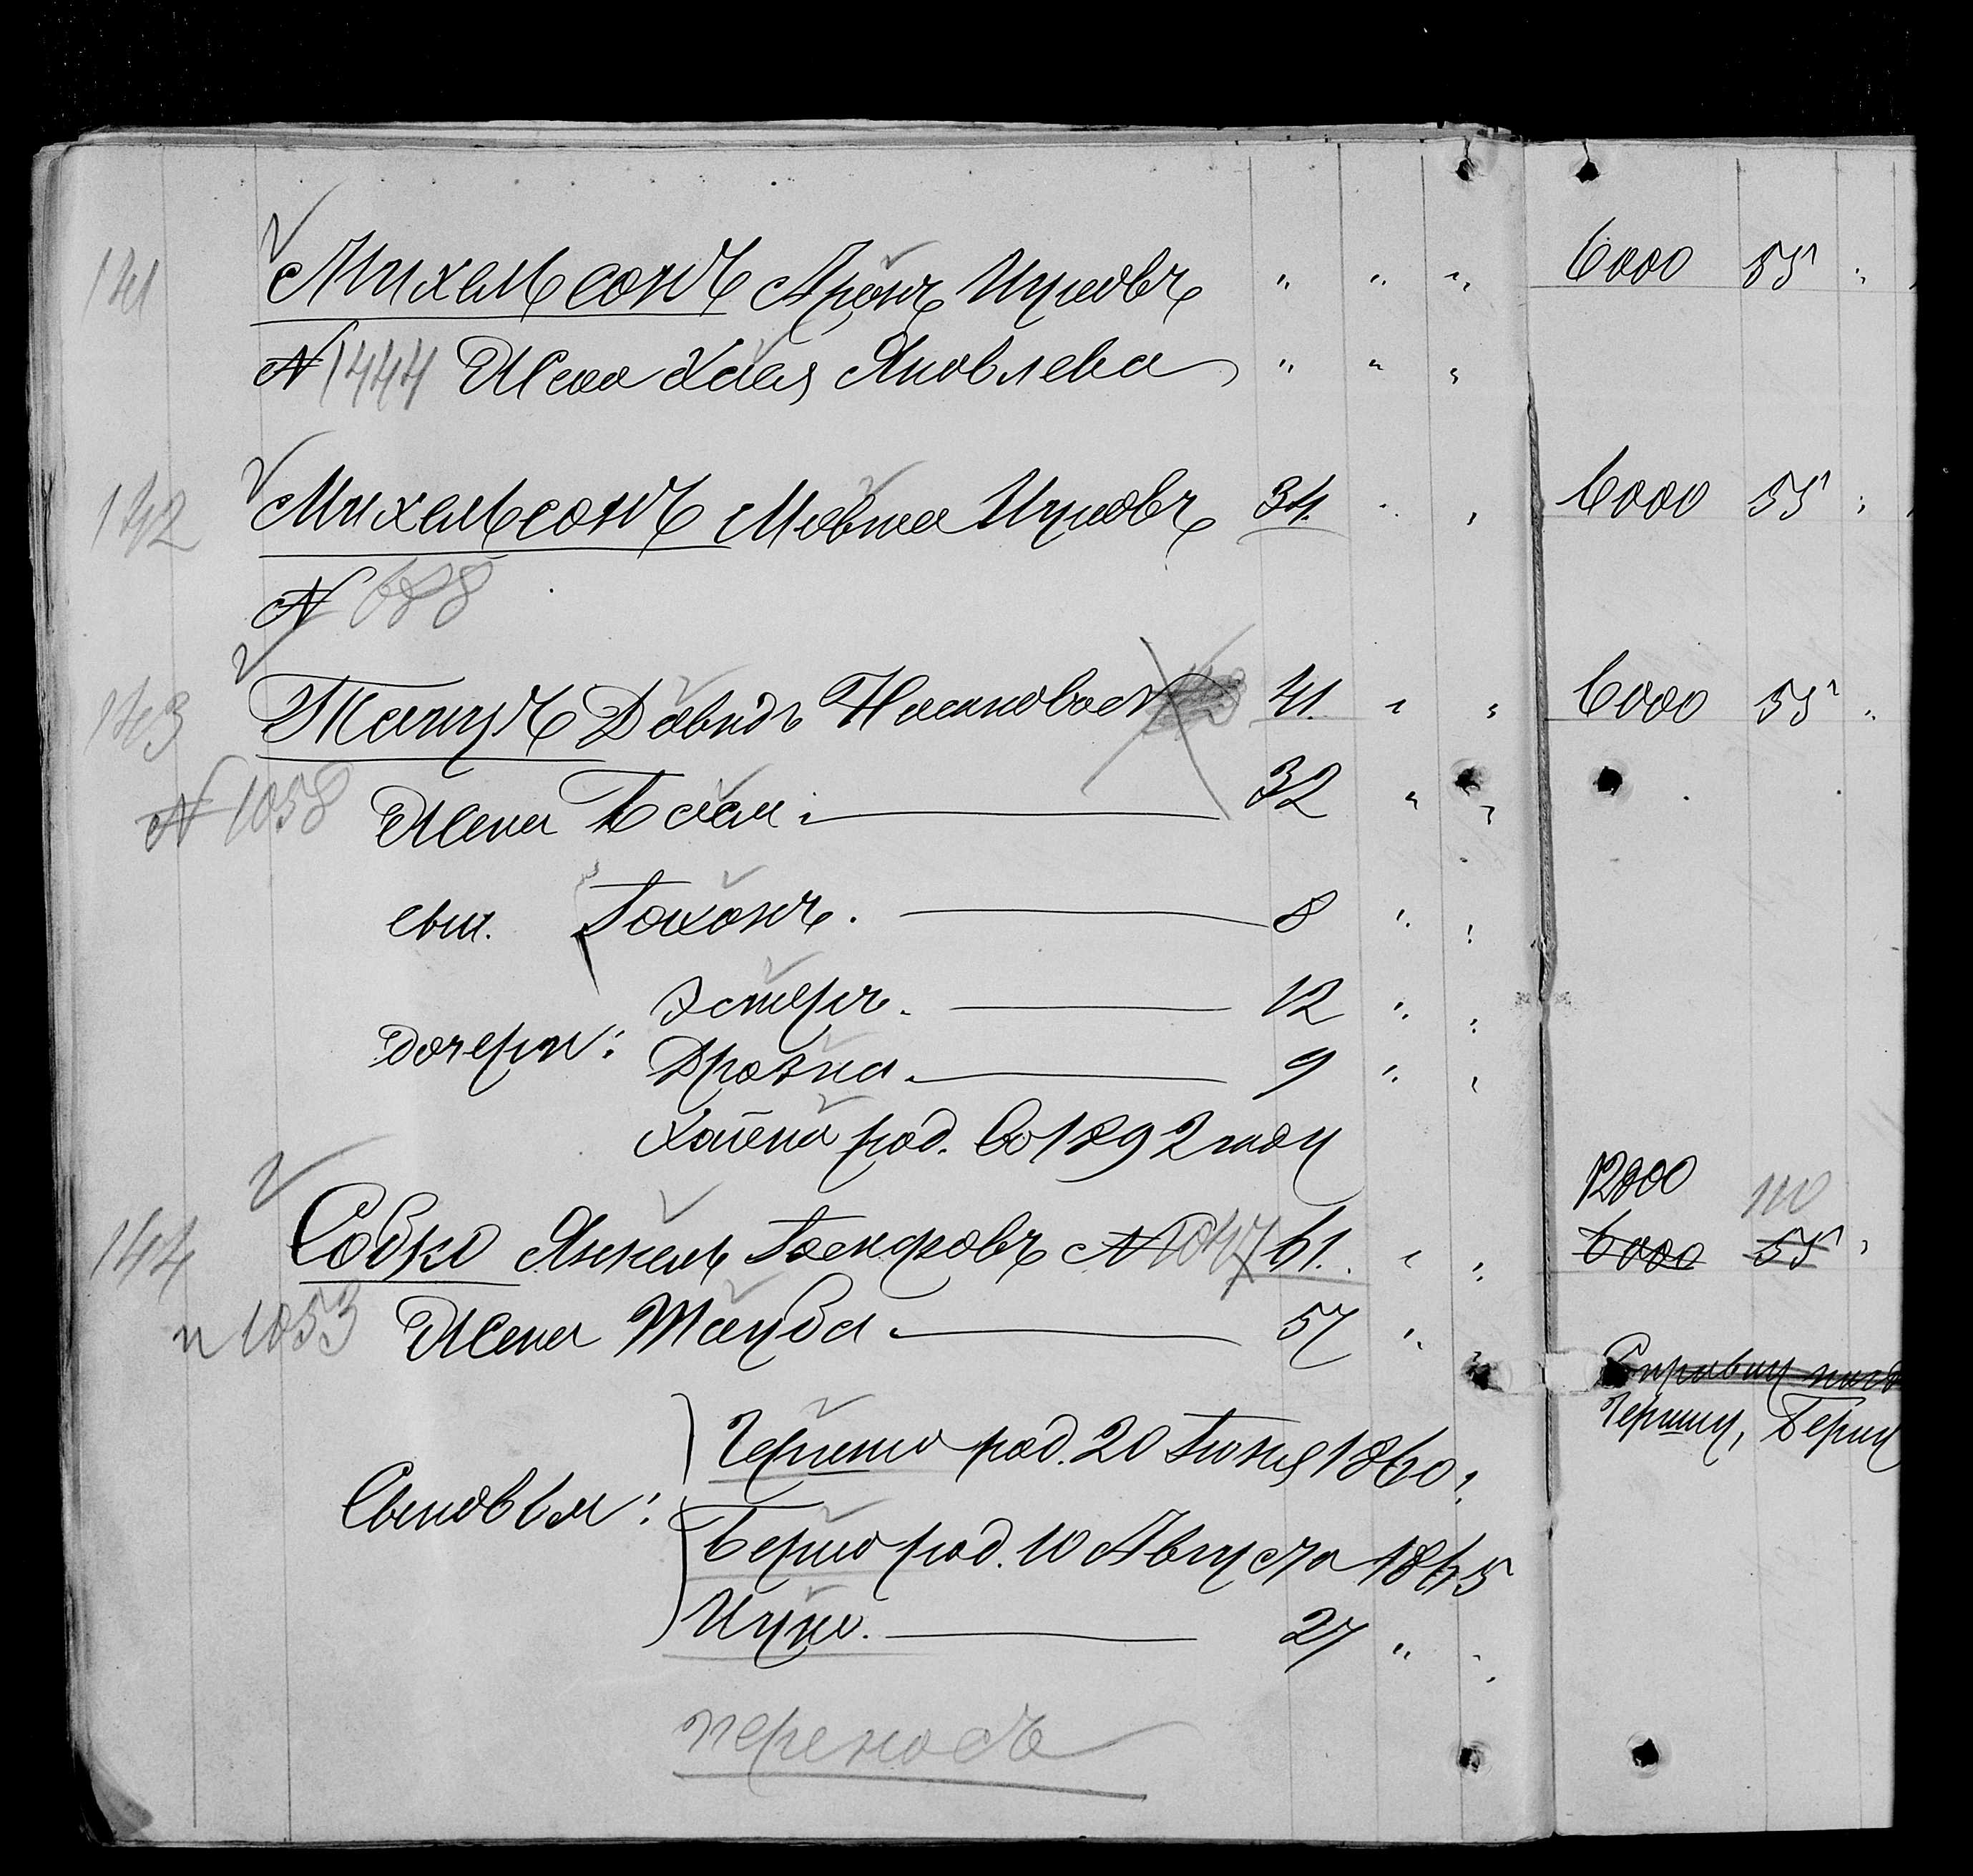 141 Михельсонъ Аронъ Ицковъ " " " 6000 55 "
№ 1444 Жена Хая Яковлева " " "
142 Михельсонъ Мовша Ицковъ 34. " " 6000 55 "
№ 688
143 Давидъ 41. " " 6000 55 "
№ 1058 Жена Бася. 32 " "
сын. Іохонъ. 8 " "
Эстеръ. 12 " "
дочери:
Дрозна. 9 " "
Хаіена род. въ 1892 году
12000 110
144 Собкі Янкель №1047 61. " " 6000 55 "
n 1053 Жена Тауба 57 " "
Гершко род. 20 Іюня 1860 "
Гершу, Берку
Сыновья:
Берко род. 10 Августа 1865
Ицко. 27 " "
переносъ